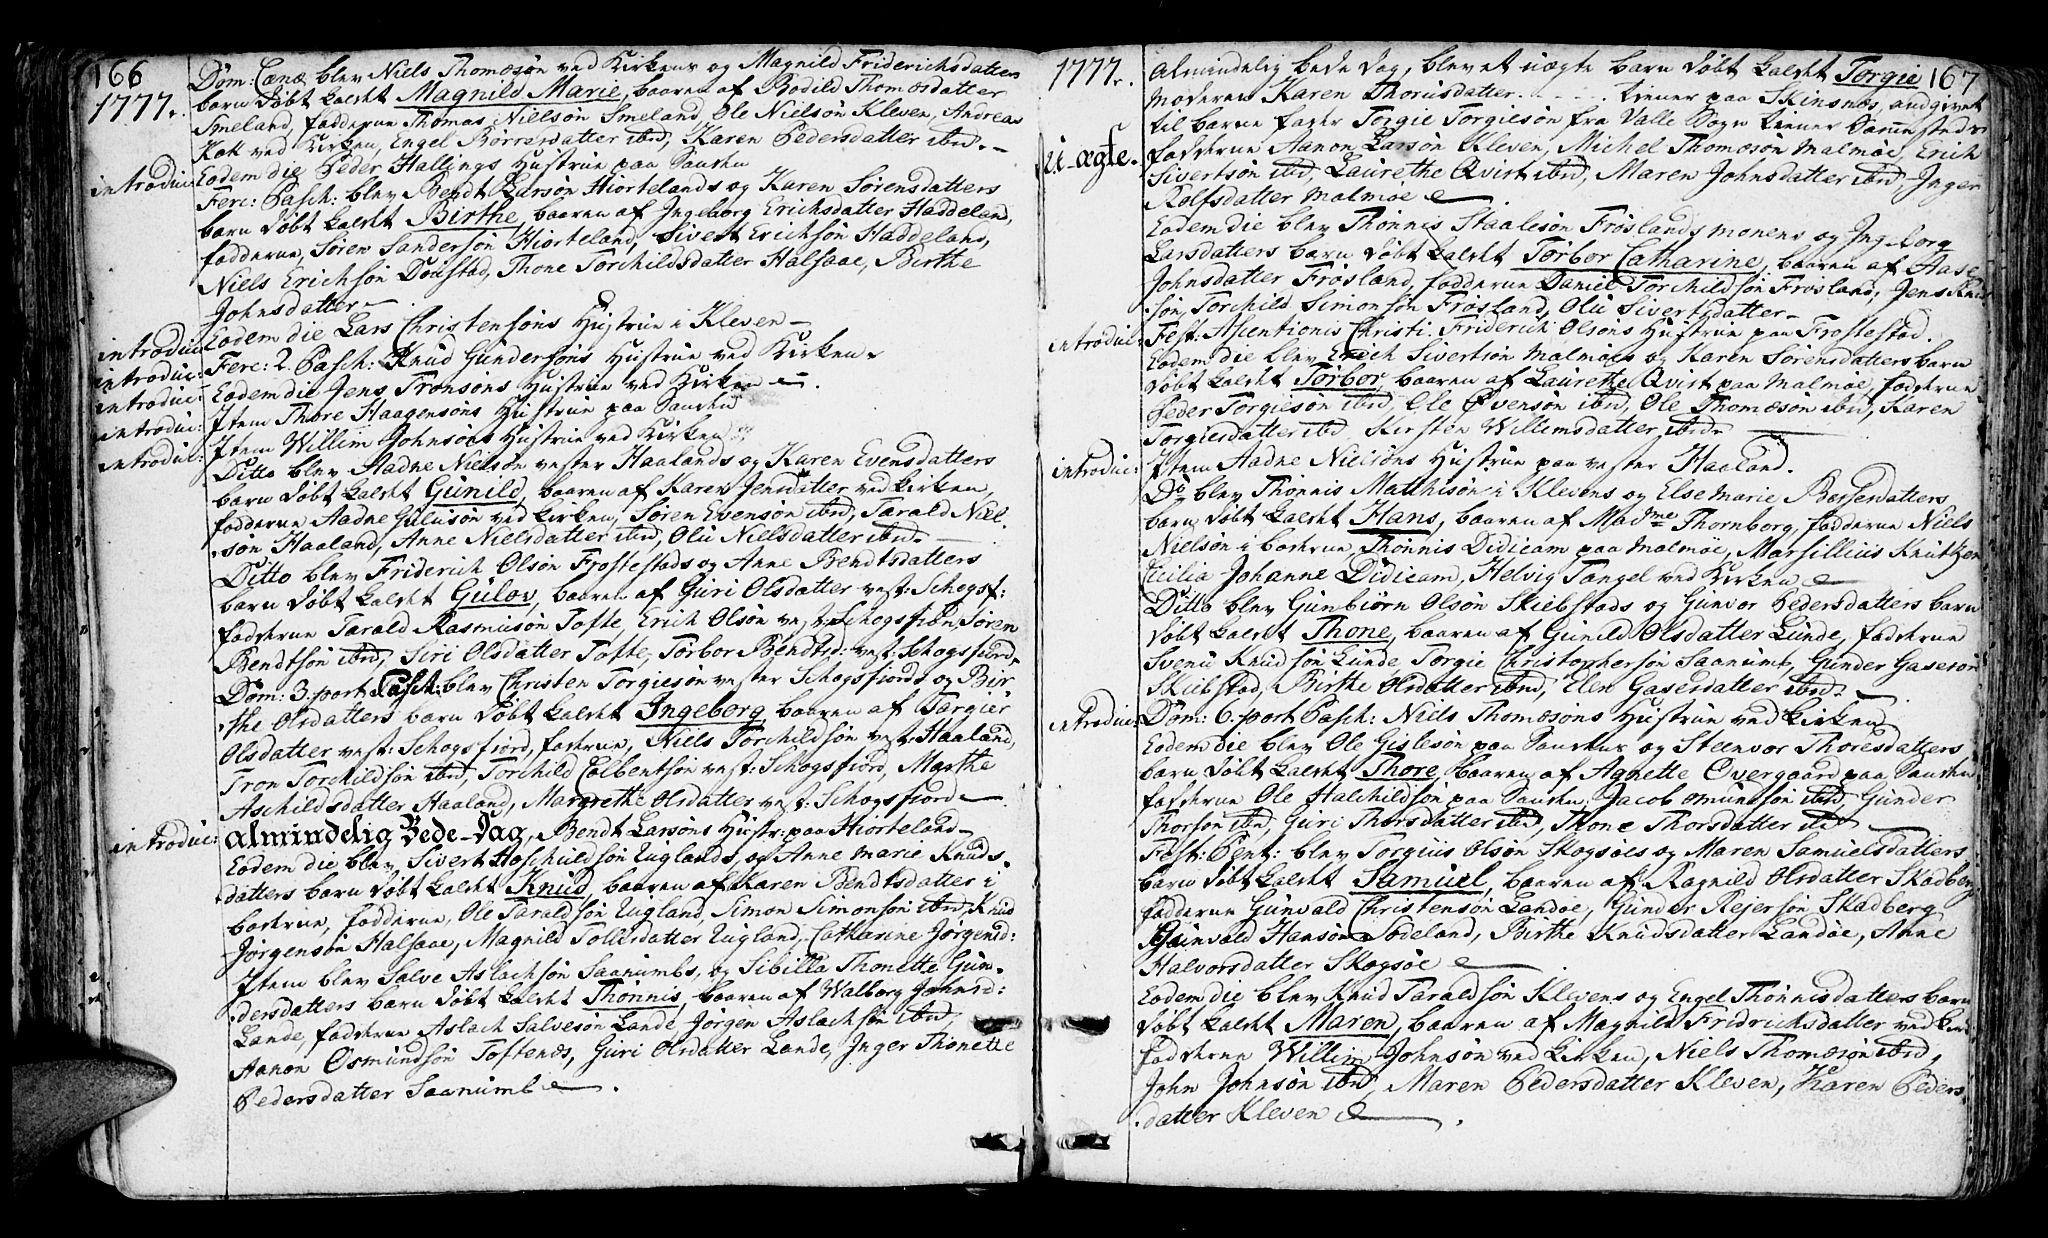 166
1777.
Dom: Cænæ blev Niels Thomæsøn ved Kirkens og Magnild Friderichsdatters
barn døbt kaldet Magnild Marie, baaren af Bodild Thomæsdatter
Smeland, fadderne Thomas Nielsøn Smeland, Ole Nielsøn Kleven, Andreas
Kok ved Kirken, Engel Børresdatter ibid, Karen Pedersdatter ibid.
introduc: Eodem die Peder Hallings Hustrue paa Sanden
Fer: Pasch: blev Bendt Larsøn Hiortelands og Karen Sørensdatters
barn døbt kaldet Birthe, baaren af Ingeborg Erichsdatter Haddeland,
fadderne, Søren Sandersøn Hiorteland, Sivert Erichsøn Haddeland,
Niels Erichsøn Dønstad, Thone Torchildsdatter Halsaae, Birthe
Johnsdatter
introduc: Eodem die Lars Christensøns Hustrue i Kleven
introduc: Fer: 2. Pasch: Knud Gundersøns Hustrue ved Kirken.
introduc: Eodem die Jens Tronsøns Hustrue ved Kirken.
introduc: Item Thore Haagensøns Hustrue paa Sanden
introduc: Item Willim Johnsøns Hustrue ved Kirken
Ditto blev Aadne Nielsøn vester Haalands og Karen Evensdatters
barn døbt kaldet Gunild, baaren af Karen Jensdatter ved Kirken,
fadderne Aadne Gulusøn ved Kirken, Søren Evensøn ibid, Tarald Niel-
søn Haaland, Anne Nielsdatter ibid, Oliu Nielsdatter ibid.
Ditto blev Friderich Olsøn Frostestads og Anne Bendtsdatters
barn døbt kaldet Gulov, baaren af Guri Olsdatter vest: Schogsf:
fadderne Tarald Rasmusøn Tofte, Erich Olsøn vest: Schogsfiord, Søren
Bendtsøn ibid, Siri Olsdatter Tofte, Torbor Bendtsd: vest: Schogsfiord.
Dom: 3. post Pasch: blev Christen Torgiesøn vester Schogsfiords og Bir-
the Olsdatters barn døbt kaldet Ingeborg, baaren af Targier
Olsdatter vest: Schogsfiord, fadderne, Niels Torchildsøn vest: Haaland,
Tron Torchildsøn ibid, Torchild Colbentsøn vest: Schogsfiord, Marthe
Aschildsdatter Haaland, Margrethe Olsdatter vest: Schogsfiord
introduc: Almindelig Bede-Dag, Bendt Larsøns Hustr: paa Hiorteland
Eodem die blev Sivert Hoschuldsøn Uglands, og Anne Marie Knuds-
datters barn døbt kaldet Knud, baaren af Karen Bendtsdatter i
borterne, fadderne, Ole Taraldsøn Ugland, Simon Simonsøn ibid, Knud
Jørgensøn Halsaae, Magnild Tollisdatter Ugland, Catharine Jørgensd:
Item blev Salve Aslachsøn Saanumbs, og Sibilla Thonette Gun-
dersdatters barn døbt kaldet Thønnis, baaren af Walborg Johnsd:
Lande, fadderne Aslach Salvesøn Lande, Jørgen Aslachsøn ibid,
Aanon Osmundsøn Toftenæs, Guri Olsdatter Lande, Inger Thonette
Pedersdatter Saanumb.
1777.
167
Almindelig bede dag, blev et uægte barn døbt kaldet Torgie
Moderen Karen Thorisdatter. tiener paa Skinsnæs, andgivet
til barne fader Torgie Torgiesøn fra Valle Sogn tiener Sammesteds
U-ægte.
fadderne Aanon Larsøn Kleven, Michel Thomæsøn Malmøe, Erich
Sivertsøn ibid, Laurethe Qvirt ibid, Maren Johnsdatter ibid, Inger
Rolfsdatter Malmøe
Eodem die blev Thønnis Staalesøn Frøslands monens og Ingeborg
Larsdatters barn døbt kaldet Torbor Catharine, baaren af Aase
Johnsdatter Frøsland, fadderne Daniel Torchildsøn Frøsland, Jens Knud
søn, Torchild Simonsøn Frøsland, Oliu Sivertsdatter
introduc: Fest: Ascentionis Christi. Friderich Olsøns Hustrue paa Frostestad.
Eodem die blev Erich Sivertsøn Malmøes og Karen Sørensdatters barn
døbt kaldet Torbor, baaren af Laurethe Qvirt paa Malmøe, fadderne
Peder Torgiesøn ibid, Ole Evensøn ibid, Ole Thomæsøn ibid, Karen
Torgiesdatter ibid Kirsten Willumsdatter ibid
introduc: Item Aadne Nielsøns Hustrue paa vester Haaland.
Do blev Thønnis Matthisøn i Klevens og Else Marie Børresdatters
barn døbt kaldet Hans, baaren af Madme Thornborg, fadderne Niels
Nielsøn i borterne, Thønnis Didicam paa Malmøe, Marsillius Knutzen
Cicilia Johanne Didicam, Helvig Tangel ved Kirken
Ditto blev Gunbiørn Olsøn Skiebstads og Gunvor Pedersdatters barn
døbt kaldet Thone, baaren af Gunild Olsdatter Lunde, fadderne
Svenu Knudsøn Lunde Torgie Christophersøn Saanumb, Gunder Gasesøn
Skiebstad, Birthe Olsdatter ibid, Elen Gasesdatter ibid.
introduc: Dom: 6. post Pasch: Niels Thomæsøns Hustrue ved Kirken
Eodem die blev Ole Gislesøn paa Sandens og Steenvor Thoresdatters
barn døbt kaldet Thore, baaren af Agnette Overgaard paa Sanden
fadderne Ole Halchildsøn paa Sanden, Jacob Omundsøn ibid, Gunder
Thorsøn ibid, Guri Thorsdatter ibid, Thone Thorsdatter ibid
Fest: Pent: blev Torgius Olsøn Skogsøes og Maren Samuelsdatters
barn døbt kaldet Samuel, baaren af Ragnild Olsdatter Skadberg
fadderne Gunvald Christensøn Landøe, Gunder Rejersøn Skadberg
Gunvald Hansøn Sodeland, Birthe Knudsdatter Landøe, Anne
Halvorsdatter Skogsøe
Eodem die blev Knud Taraldsøn Klevens og Engel Thønnisdatters barn
døbt kaldet Maren, baaren af Magnild Fridrichsdatter ved Kird
fadderne Willim Johnsøn ved Kirken, Niels Thomæsøn ibid,
John Johnsøn ibid, Maren Pedersdatter Kleven, Karen Peders-
datter Kleven